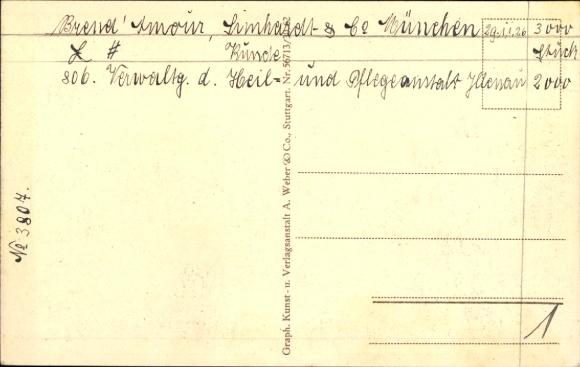 Brend'Amour, Simhardt & Co München 29.11.26 3000
Stück
L # Kunde
806. Verwaltg. d. Heil- und Pflegeanstalt Illenau 2000
Graph. Kunst- u. Verlagsanstalt A. Weber & Co., Stuttgart. Nr. 56713/
No 3807.
1